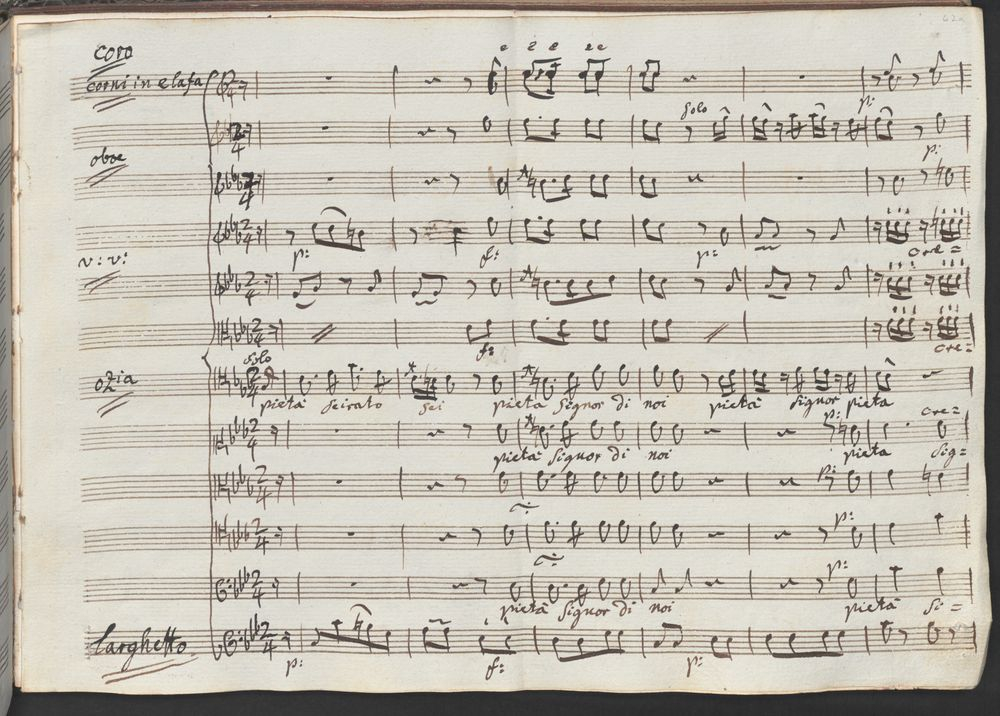 62a
Coro
Corni in elafa
Solo
p:
oboe
p:
v: v:
p: f: p: cre=
f: cre=
Solo
ozia
pietà Seirato Sei pietà Signor di noi pietà Signor pieta
p: cre=
pietà Signor di noi pietà Sig=
p:
p:
p:
pietà Signor di noi pietà Si=
Larghetto
p: f: p: